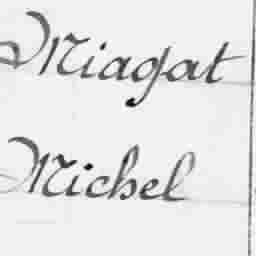 Niagat
Michel